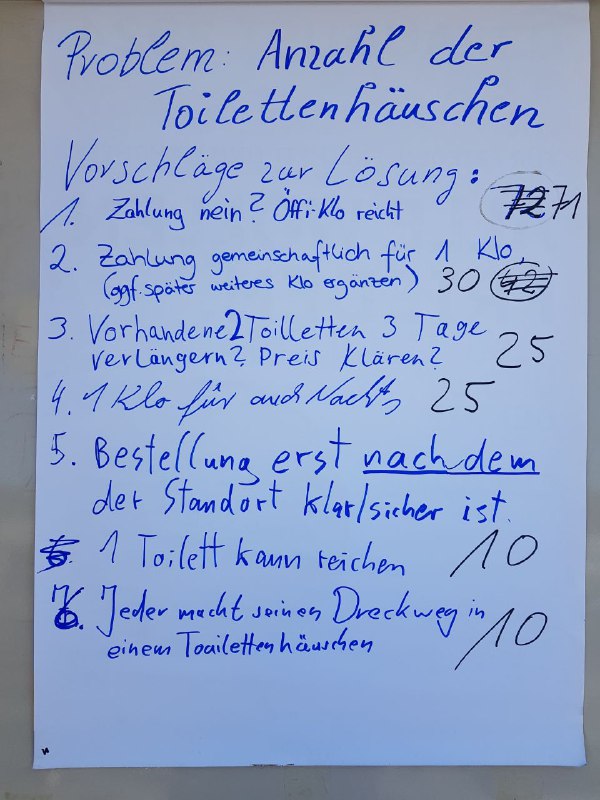 Problem: Anzahl der
Toilettenhäuschen
Vorschläge zur Lösung:
1. Zahlung nein? Öffi-Klo reicht 72 71
2. Zahlung gemeinschaftlich für 1 Klo,
(ggf. später weiteres Klo ergänzen) 30 42
3. Vorhandene 2 Toilletten 3 Tage
verlängern? Preis klären? 25
4. 1 Klo für auch Nachts 25
5. Bestellung erst nachdem
der Standort klar/sicher ist.
1 Toilett kann reichen 10
Jeder macht seinen Dreckweg in
einem Toailettenhäuschen 10